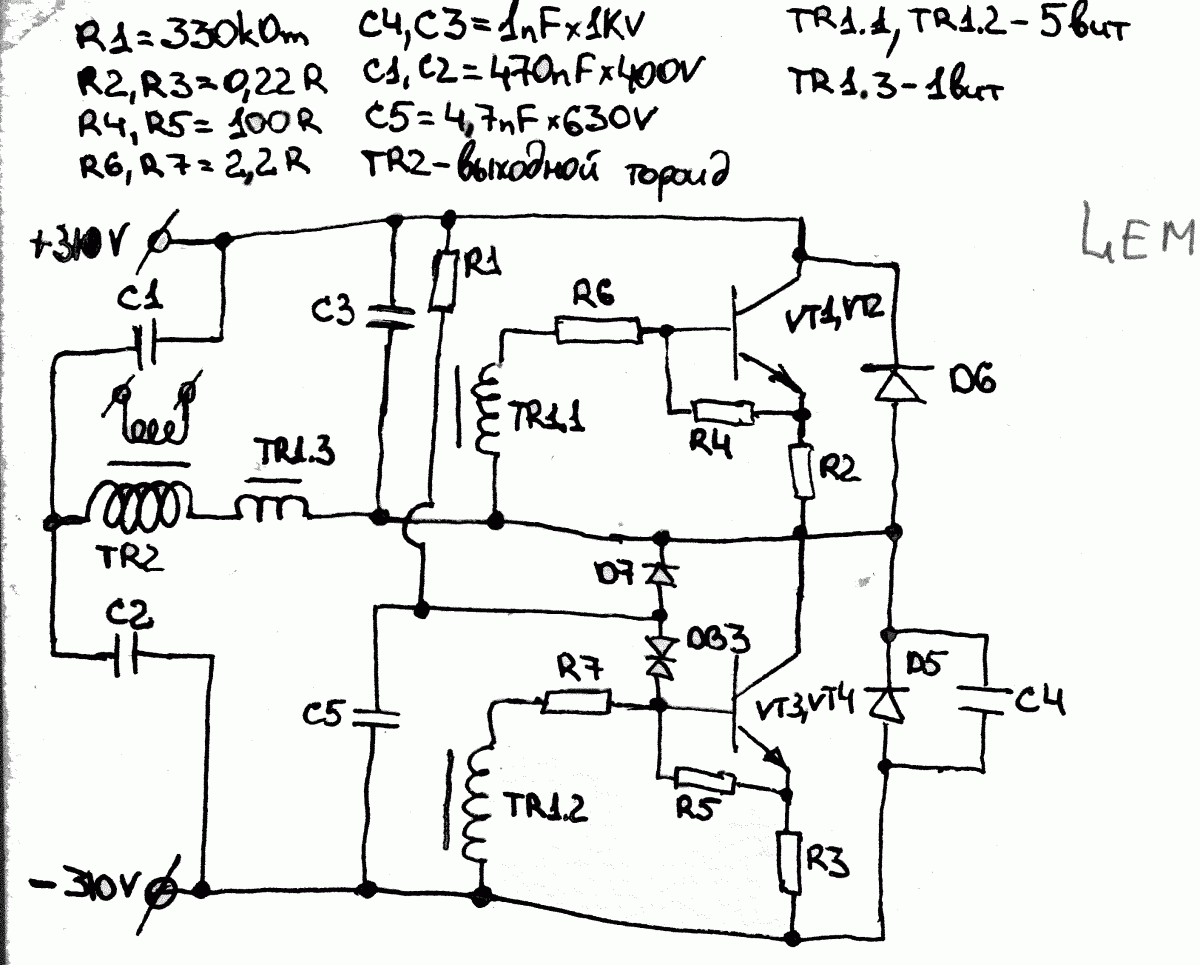 R1=330kOm
R2,R3=0,22R
R4,R5=100R
R6,R7=2,2R
C4,C3=1nF×1KV
C1,C2=470nF×400V
C5=4,7nF×630V
TR2-выходной тороид
TR1.1, TR1.2-5вит
TR1.3-1вит
+310V
C1
C3
R1
R6
VT1,VT2
D6
TR1.1
R4
R2
TR1.3
TR2
D7
C2
DB3
R7
D5
C5
VT3,VT4
C4
TR1.2
R5
R3
-310V